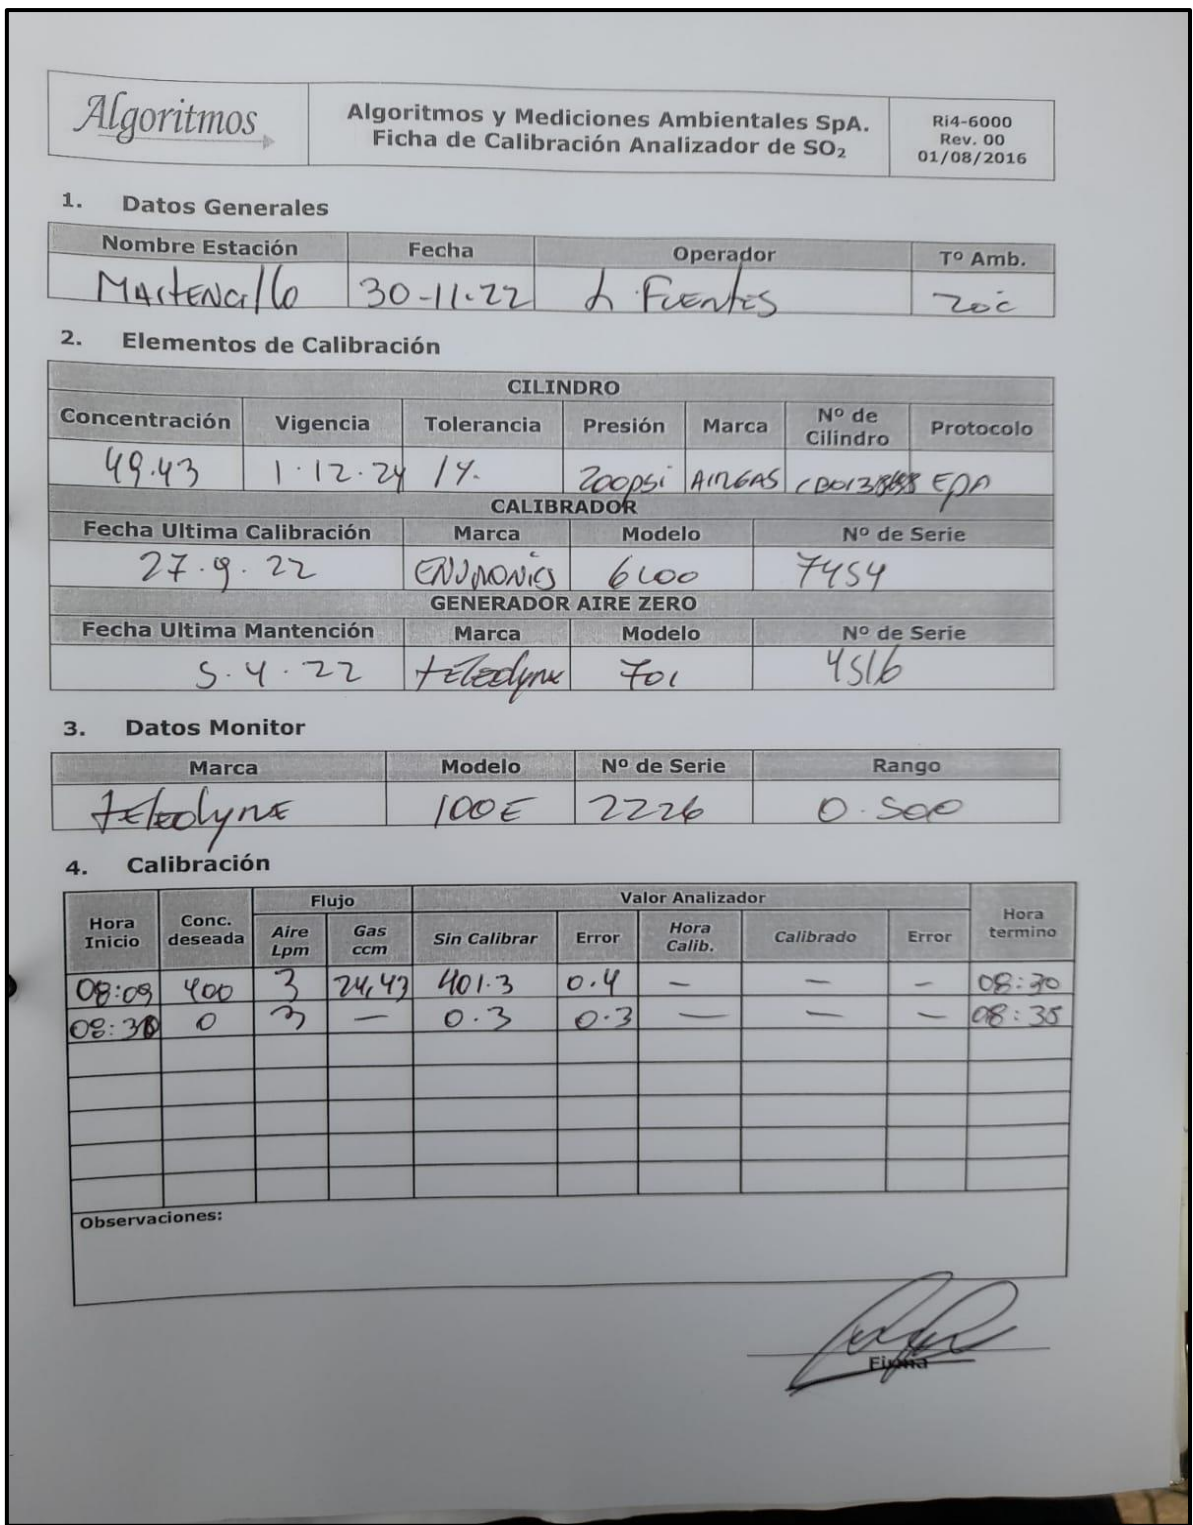 Algoritmos
Algoritmos y Mediciones Ambientales SpA.
Ficha de Calibración Analizador de SO₂
Ri4-6000
Rev. 00
01/08/2016
1. Datos Generales
Nombre Estación Fecha Operador Tº Amb.
30-11-22 L. FUENTES 20ºC
2. Elementos de Calibración
CILINDRO
Concentración Vigencia Tolerancia Presión Marca Nº de Cilindro Protocolo
49.43 1.12.24 1%. 200psi AIRGAS EPA
CALIBRADOR
Fecha Ultima Calibración Marca Modelo Nº de Serie
27.9.22 7454
GENERADOR AIRE ZERO
Fecha Ultima Mantención Marca Modelo Nº de Serie
5.4.22 teledyne 701 4516
3. Datos Monitor
Marca Modelo Nº de Serie Rango
teledyne 100E 2226 0.500
4. Calibración
Flujo Valor Analizador
Hora Inicio Conc. deseada Aire Lpm Gas ccm Sin Calibrar Error Hora Calib. Calibrado Error Hora termino
08:09 400 3 401.3 0.4 — — — 08:30
08:30 0 3 — 0.3 0.3 — — — 08:35
Observaciones:
Firma